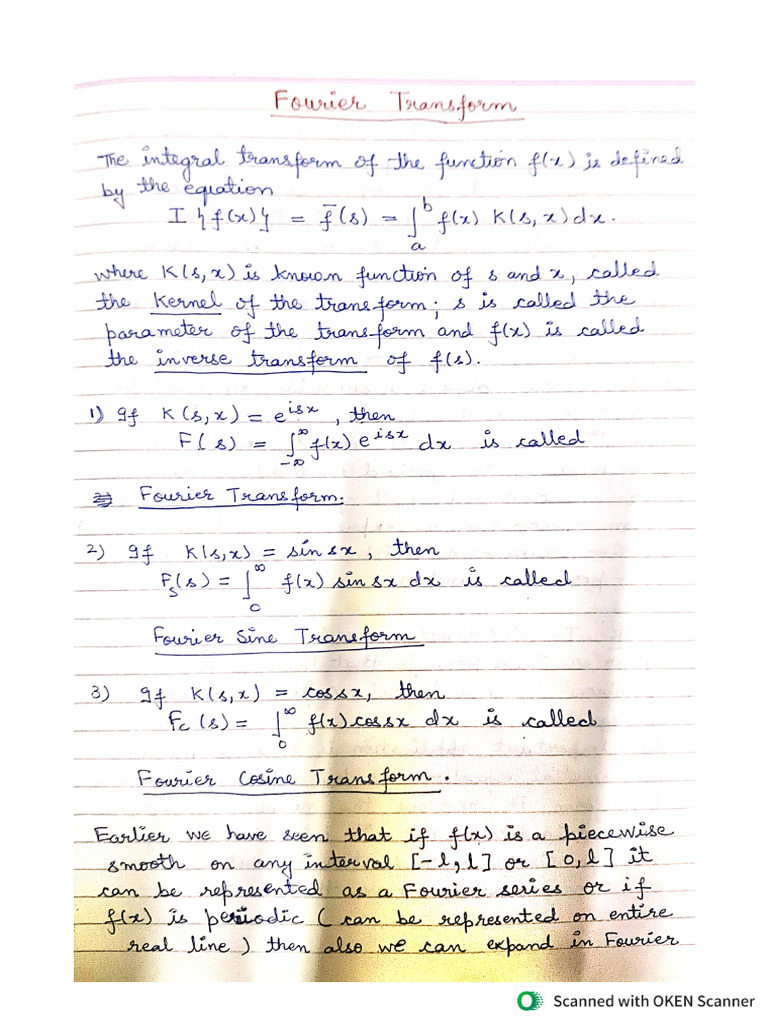 Fourier Transform
The integral transform of the function f(x) is defined
by the equation
I {f(x)} = f̄(s) = ∫_a^b f(x) K(s,x) dx.
where K(s,x) is known function of s and x, called
the kernel of the transform; s is called the
parameter of the transform and f(x) is called
the inverse transform of f(s).
1) If K(s,x) = e^{isx}, then
F(s) = ∫_{-∞}^{∞} f(x) e^{isx} dx is called
Fourier Transform.
2) If K(s,x) = sin sx, then
F_s(s) = ∫_0^∞ f(x) sin sx dx is called
Fourier Sine Transform
3) If K(s,x) = cos sx, then
F_c(s) = ∫_0^∞ f(x) cos sx dx is called
Fourier Cosine Transform.
Earlier we have seen that if f(x) is a piecewise
smooth on any interval [-l, l] or [0, l] it
can be represented as a Fourier series or if
f(x) is periodic (can be represented on entire
real line) then also we can expand in Fourier
Scanned with OKEN Scanner